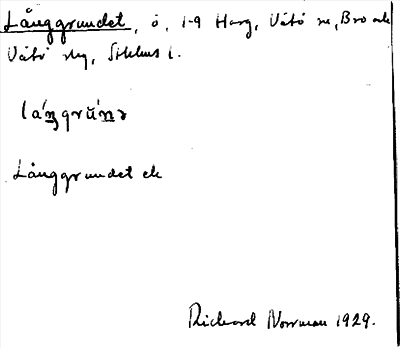 Långgrundet, ö, 1-9 Harg, Vätö sn, Bro och
Vätö skg, Sthlms l.
lá́ŋgrŭ́nə
Långgrundet ek
Rickard Norrman 1929.